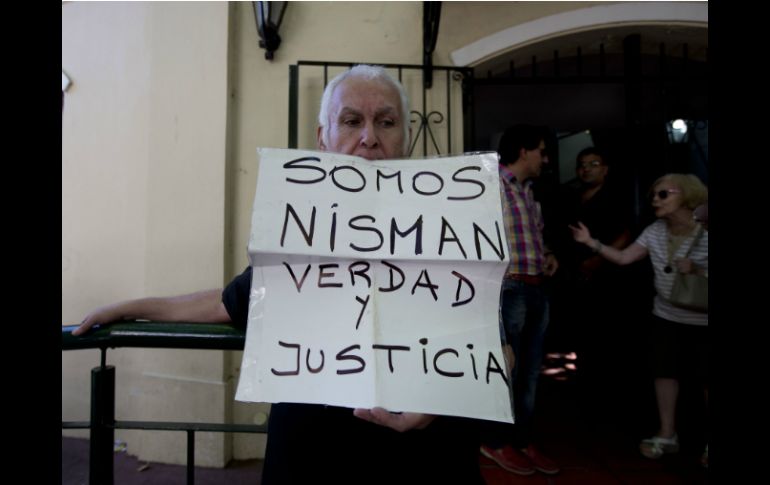 SOMOS
NISMAN
VERDAD
Y
JUSTICIA